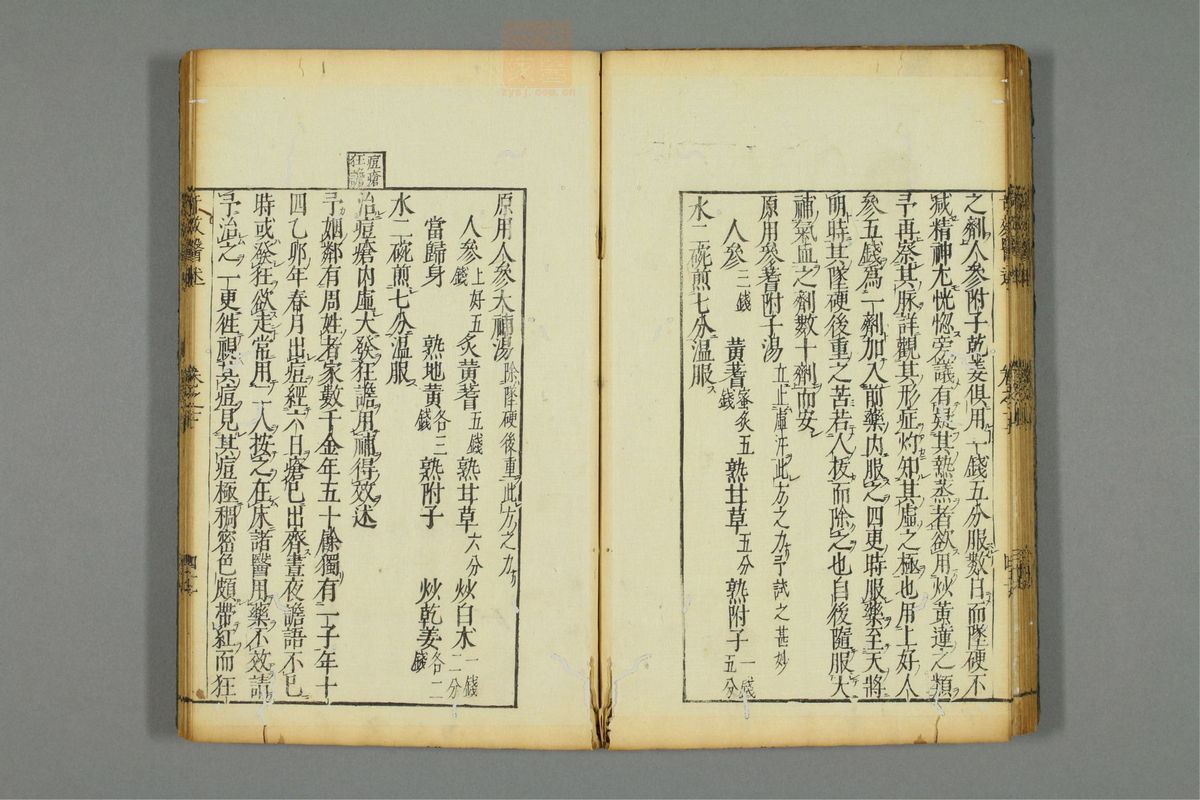 之劑人參附子乾姜俱用一錢五分服數日而墜硬不
減精神尤恍惚旁議有疑其熱蒸者欲用炒黃連之類
予再察其脉詳觀其形症灼知其虛之極也用上好人
參五錢爲一劑加入前藥內服之四更時服藥至天將
明時其墜硬後重之苦若人拔而除之也自後隨服大
補氣血之劑數十劑而安
原用參蓍附子湯 立止虛汗此方之力予試之甚妙
人參三錢 黃蓍蜜炙五錢 熟甘草五分 熟附子一錢五分
水二碗煎七分溫服
原用人參大補湯 除墜硬後重此方之力
人參上好五錢 炙黃蓍五錢 熟甘草六分 炒白朮一錢二分
當歸身 熟地黃各三錢 熟附子 炒乾姜各二錢
水二碗煎七分溫服
痘瘡狂譫
治痘瘡內虛大發狂譫用補得效述
予姻鄰有周姓者家數千金年五十餘獨有一子年十
四乙卯年春月出痘經六日瘡已出齊晝夜譫語不已
時或發狂欲走常用二人按之在床諸醫用藥不效請
予治之一更徃視其痘見其痘極稠密色頗帶紅而狂